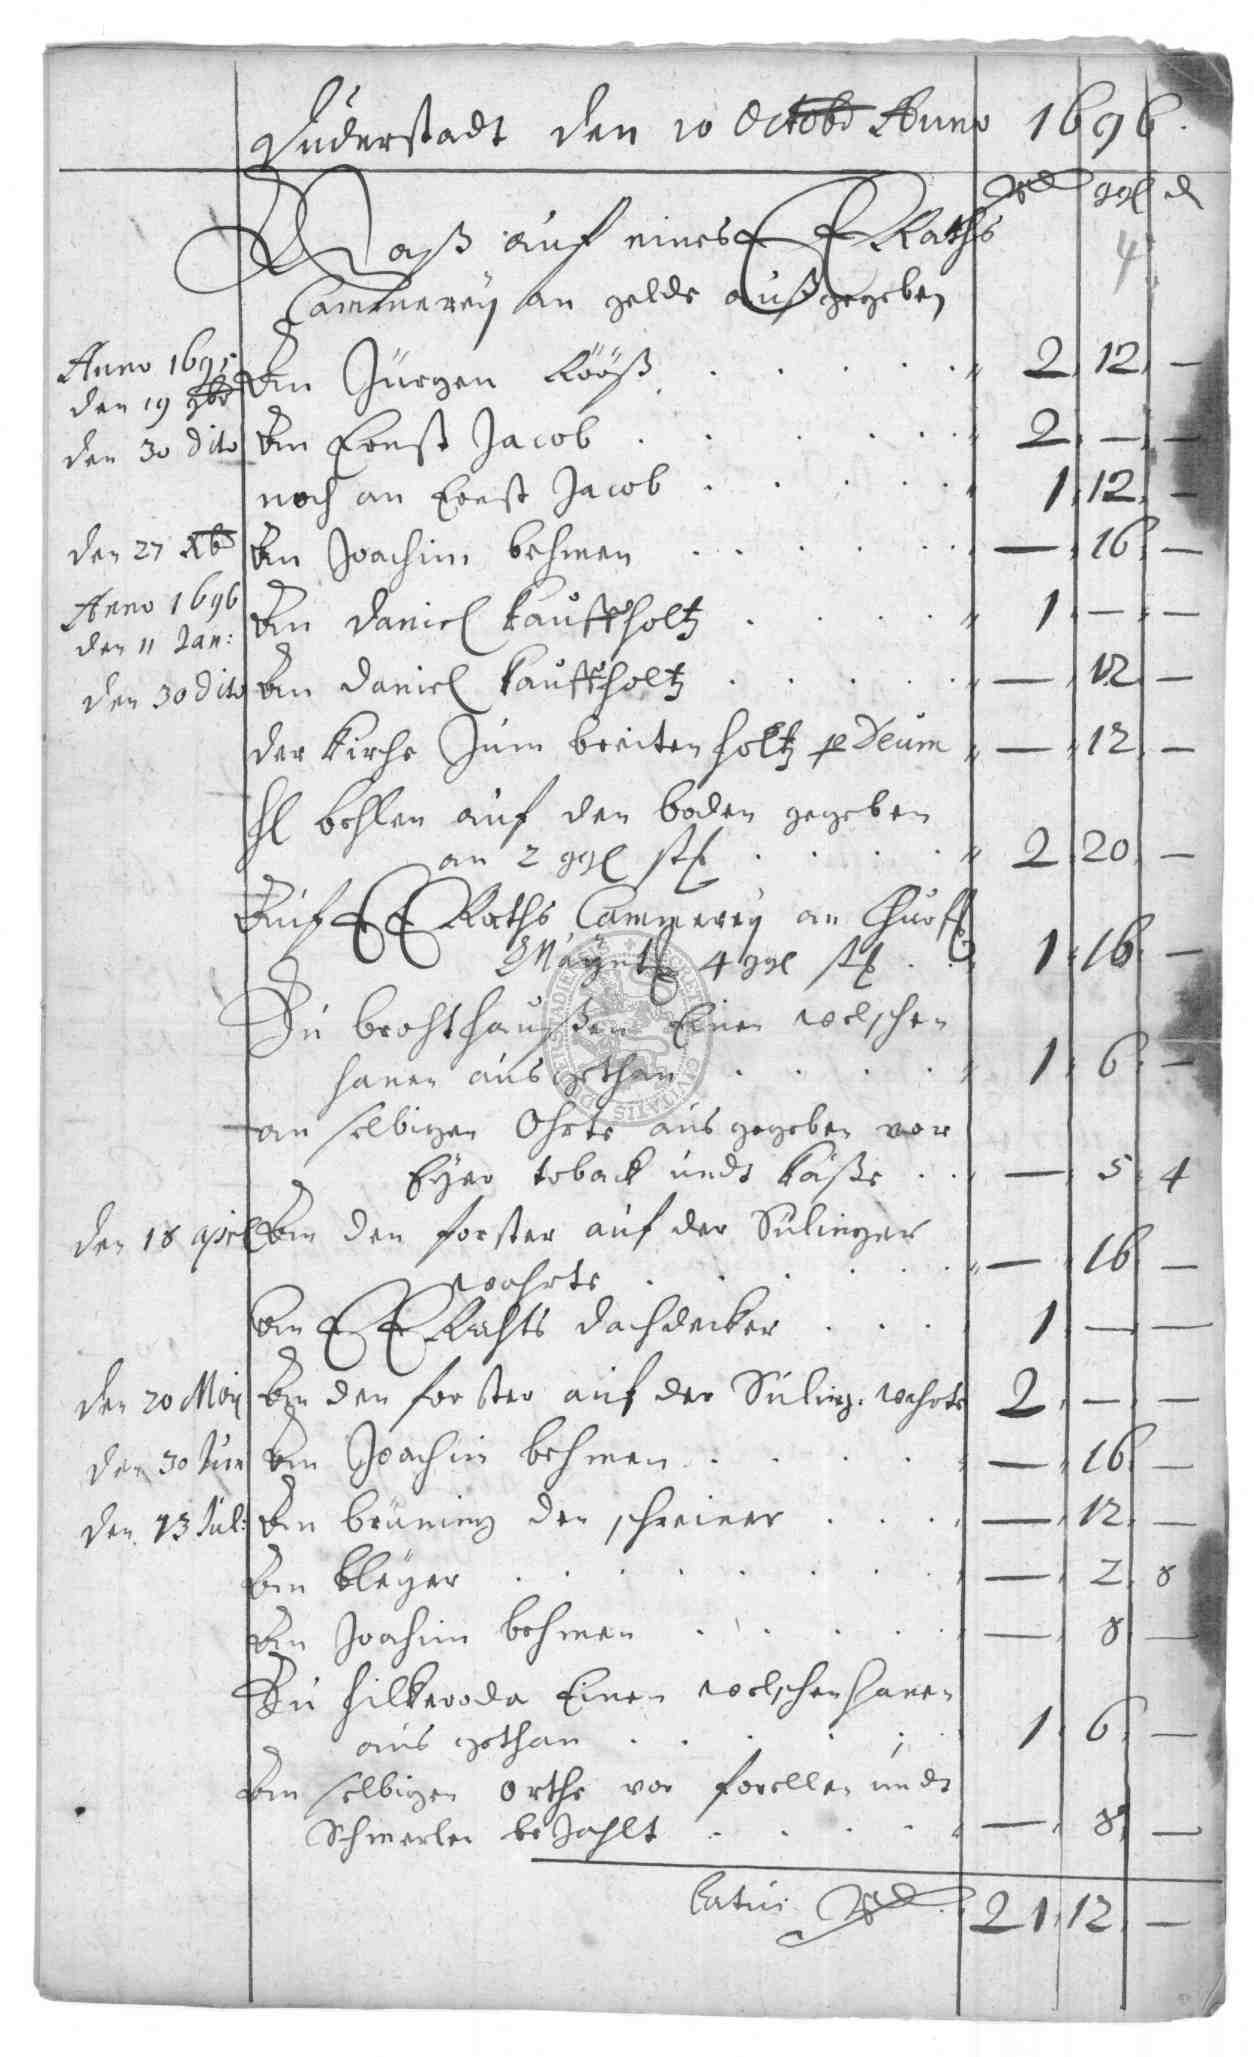 Duderstadt den 10 Octobr Anno 1696.
Rthl ggl d
Waß auf eines E E Raths 4
Cammerey an gelde außgegeben
Anno 1695
den 19 9br An Jürgen Rööß 2 12 —
den 30 dito An Ernst Jacob 2 — —
noch an Ernst Jacob 1 12 —
den 27 Xbr An Joachim behmen — 16 —
Anno 1696
den 11 Jan: An Daniel Kauffholtz 1 — —
den 30 dito An Daniel Kauffholtz — 12 —
der Kirche Zum breiten holtz p Deum — 12 —
behlen auf den boden gegeben
an 2 ggl 2 20 —
Auf E E Raths Cammerey an Churf
Mayntz 4 ggl 1 16 —
Zu brohthaußen Einen welschen
hanen ausgethan 1 6 —
an selbigen Ohrte ausgegeben vor
Eyer toback undt Käße — 5 4
den 18 april An den forster auf der Sülinger
warte — 16 —
An E E Rahts dachdecker 1 — —
den 20 Maij An den forster auf der Süling: wahrte 2 — —
den 30 Jun An Joachim behmen — 16 —
den 13 Jul: An brüning den schreiner — 12 —
An bleyer — 2 8
An Joachim behmen — 8 —
Zu hilkeroda Einen welschen hanen
aus gethan 1 6 —
Am selbigen Orthe vor forellen undt
Schmerlen beZahlt — 8 —
Latus Rthl 21 12 —